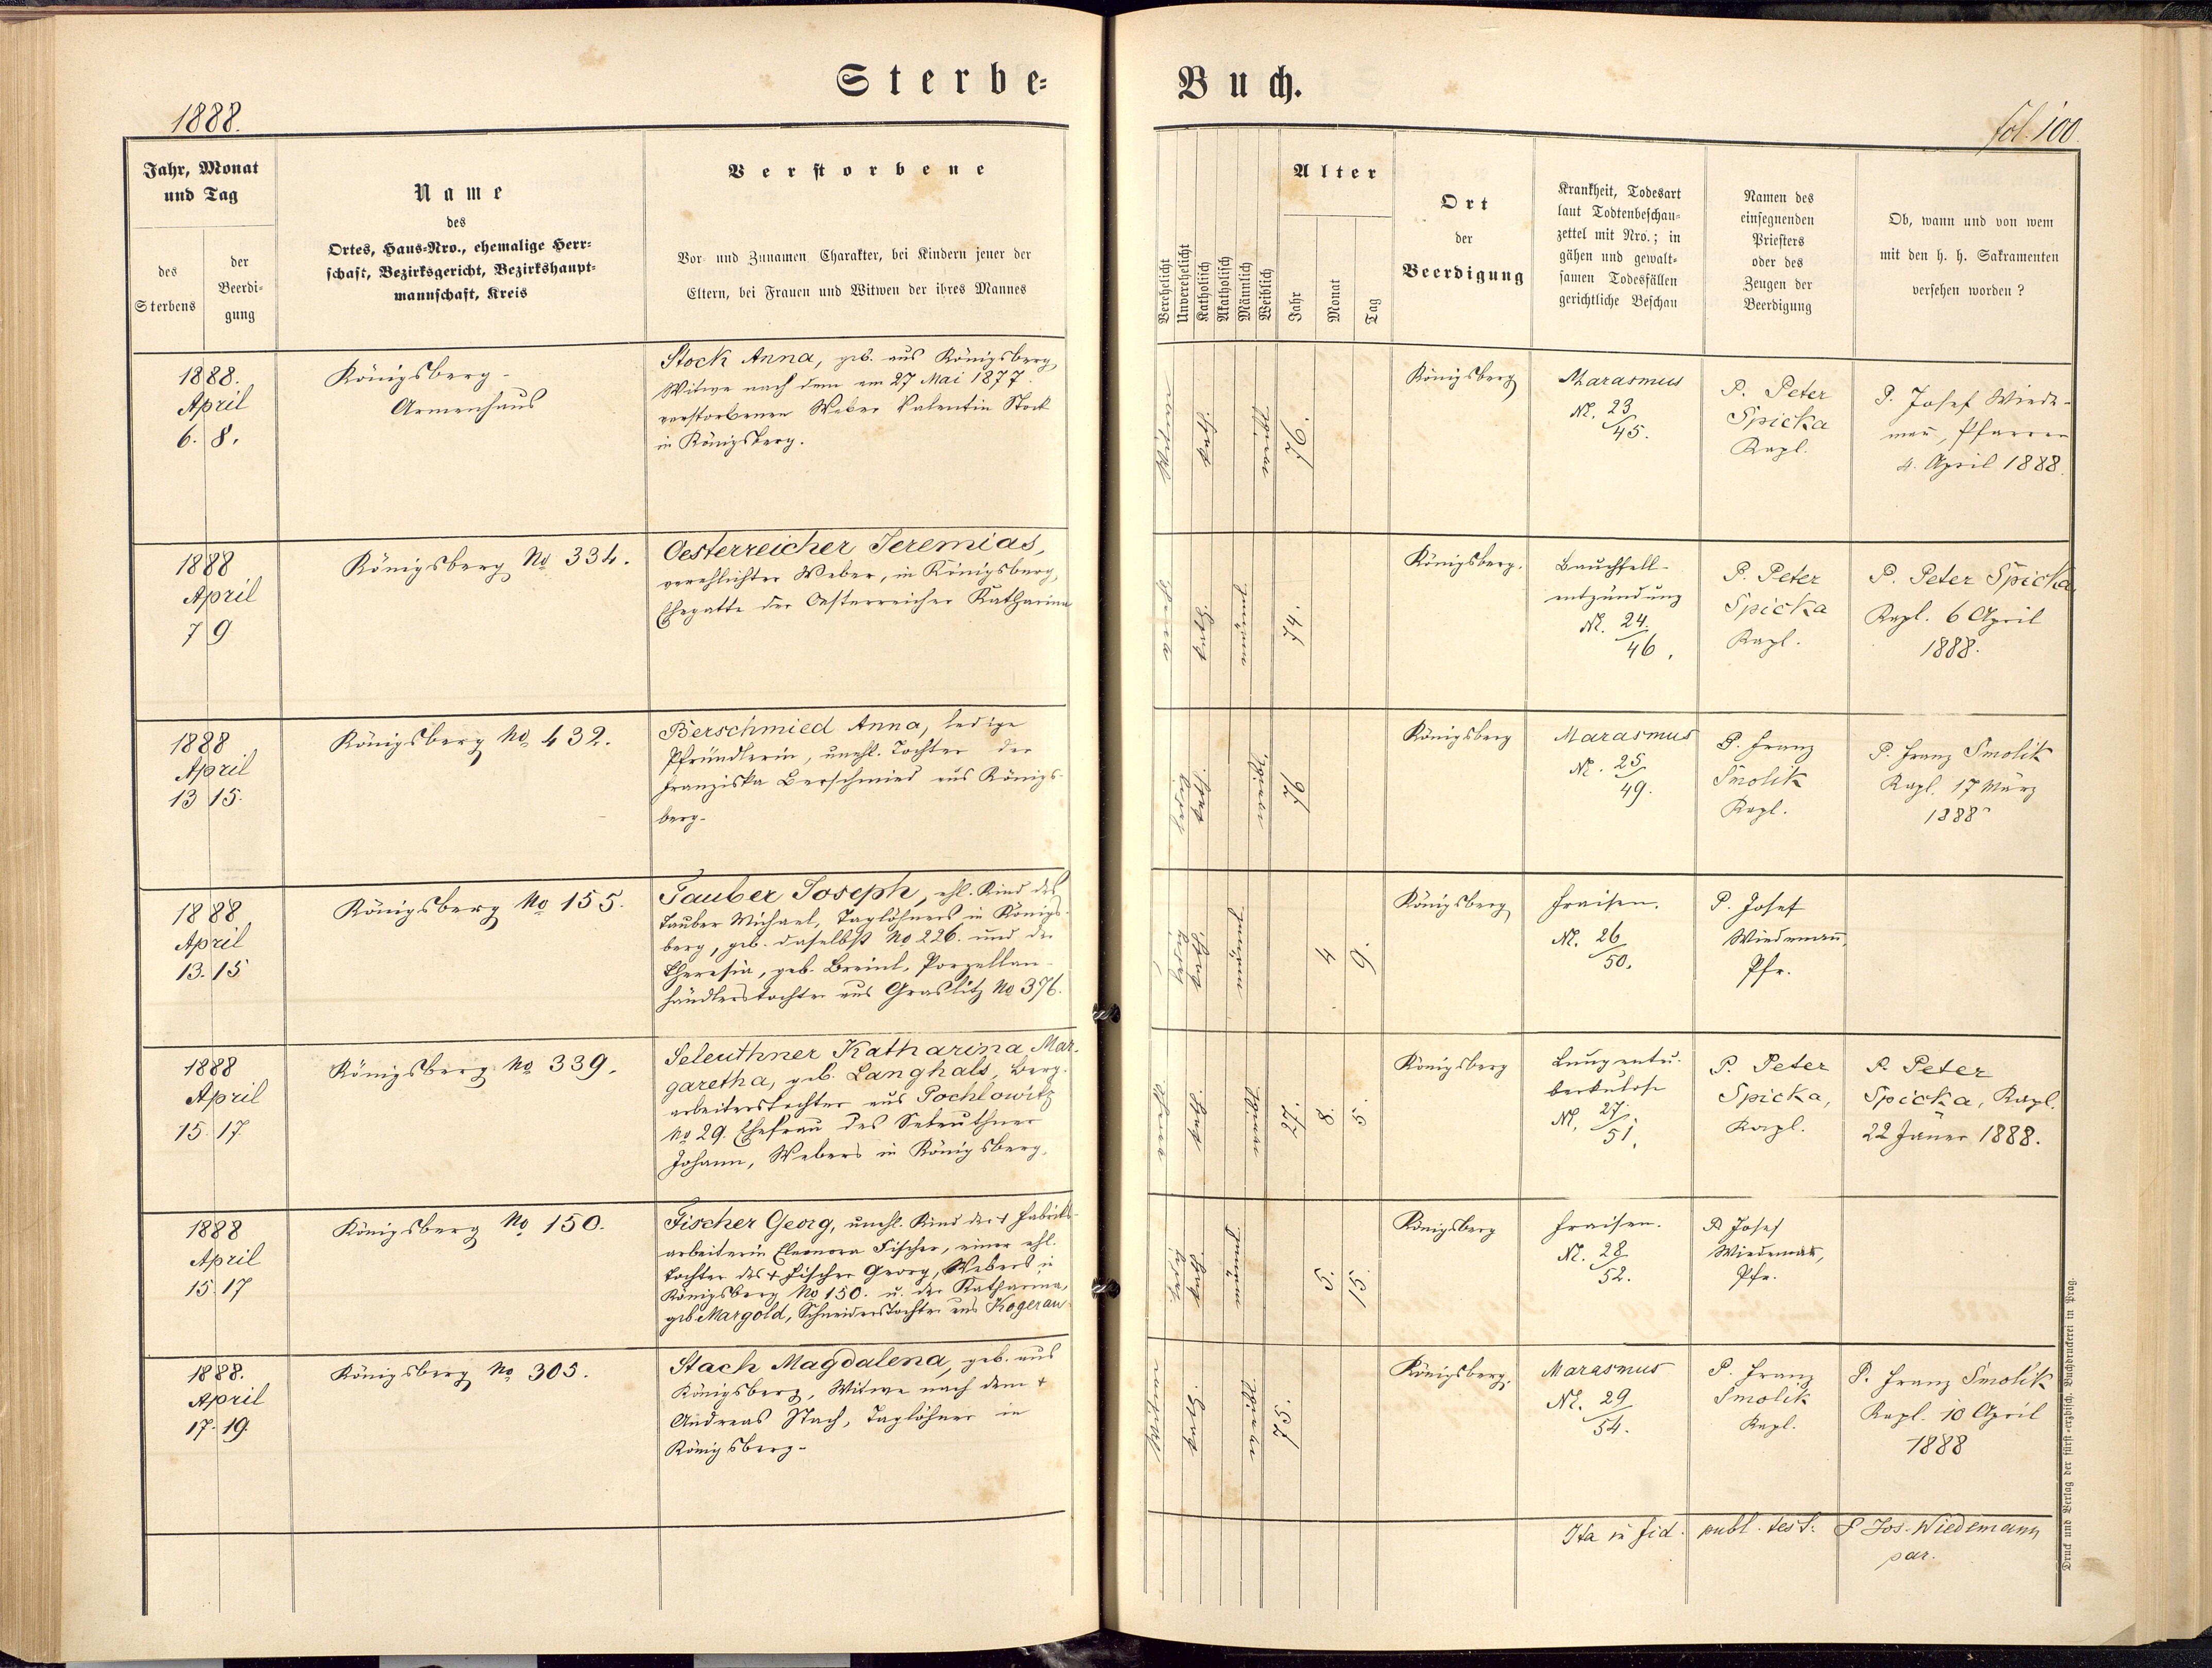 Sterbe-
Buch.
1888.
fol. 100.
Jahr, Monat
und Tag
des
Sterbens
der
Beerdi-
gung
Name
des
Ortes, Haus-Nro., ehemalige Herr-
schaft, Bezirksgericht, Bezirkshaupt-
mannschaft, Kreis
Verstorbene
Vor- und Zunamen Charakter, bei Kindern jener der
Eltern, bei Frauen und Witwen der ihres Mannes
Verehelicht
Unverehelicht
Katholisch
Akatholisch
Männlich
Weiblich
Alter
Jahr
Monat
Tag
Ort
der
Beerdigung
Krankheit, Todesart
laut Todtenbeschau-
zettel mit Nro.; in
gähen und gewalt-
samen Todesfällen
gerichtliche Beschau
Namen des
einsegnenden
Priesters
oder des
Zeugen der
Beerdigung
Ob, wann und von wem
mit den h. h. Sakramenten
versehen worden?
1888.
April
6. 8.
Königsberg-
Armenhaus
Stock Anna, geb. aus Königsberg,
Witwe nach dem am 27 Mai 1877.
verstorbenen Weber Valentin Stock
in Königsberg.
Witwe
kath
76.
Königsberg
Marasmus
N. 23/45.
P. Peter
Spicka
Kapl.
P. Josef Wiede-
mañ, Pfarrer
4. April 1888.
1888
April
7 9
Königsberg No 334.
Oesterreicher Jeremias,
verehlichter Weber, in Königsberg,
Ehegatte der Oesterreicher Katharina
kath
74.
Königsberg.
Bauchfell-
entzündung
N. 24./46.
P. Peter
Spicka
Kapl.
P. Peter Spicka
Kapl. 6 April
1888.
1888
April
13 15.
Königsberg No 432.
Berschmied Anna, ledige
Pfründlerin, unehl. Tochter der
Franziska Berschmied aus Königs-
berg-
ledig
kath
76
Königsberg
Marasmus
N. 25/49.
P. Franz
Smolik
Kapl.
P. Franz Smolik
Kapl. 17 März
1888
1888
April
13. 15
Königsberg No 155.
Tauber Joseph, ehl. Kind des
Tauber Michael, Taglöhners in Königs-
berg, geb. daselbst No 226. und der
Theresia, geb. Breinl, Porzellan-
händlerstochter aus Graslitz No 376.
ledig
kath
4
9.
Königsberg
Fraisen.
N. 26/50.
P. Josef
Wiedemañ,
Pfr.
1888
April
15. 17.
Königsberg No 339.
Seleuthner Katharina Mar-
garetha, geb. Langhals, Berg-
arbeiterstochter aus Pochlowitz
No 29. Ehefrau des Seleuthner
Johann, Webers in Königsberg.
kath
27.
8.
5.
Königsberg
Lungentu-
berkulose
N. 27/51.
P. Peter
Spicka,
Kapl.
P. Peter
Spicka, Kapl.
22 Jäner 1888.
1888
April
15. 17
Königsberg No 150.
Fischer Georg, unehl. Kind der + Fabriks-
arbeiterin Eleonora Fischer, einer ehl.
Tochter des + Fischer Georg, Webers in
Königsberg No 150. u. der Katharina,
geb Margold, Schneiderstochter aus Kogerau
ledig
kath
5.
15.
Königsberg
Fraisen.
N. 28/52.
P. Josef
Wiedemañ,
Pfr.
1888.
April
17. 19.
Königsberg No 305.
Stach Magdalena, geb. aus
Königsberg, Witwe nach dem +
Andreas Stach, Taglöhner in
Königsberg-
Witwe
kath
75.
Königsberg.
Marasmus
N. 29/54.
P. Franz
Smolik
Kapl.
P. Franz Smolik
Kapl. 10 April
1888
Ita in fid. publ. test: P Jos. Wiedemann
par.
Druck und Verlag der fürst-erzbisch. Buchdruckerei in Prag.